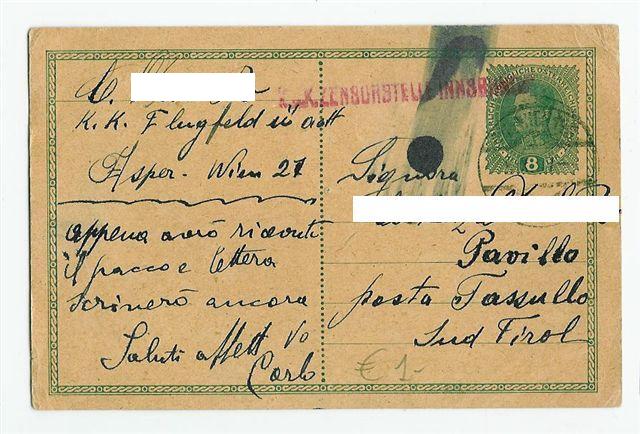 C.
K.K. Flugfeld in
Asper. Wien 21
appena avrò ricevuti
il pacco e lettera
scriverò ancora
Saluti affett Vo
Carlo
K.u.K. ZENSURSTELLE INNSBRUCK
8
Signora
Pavillo
posta Tassullo
Sud Tirol
€ 1-